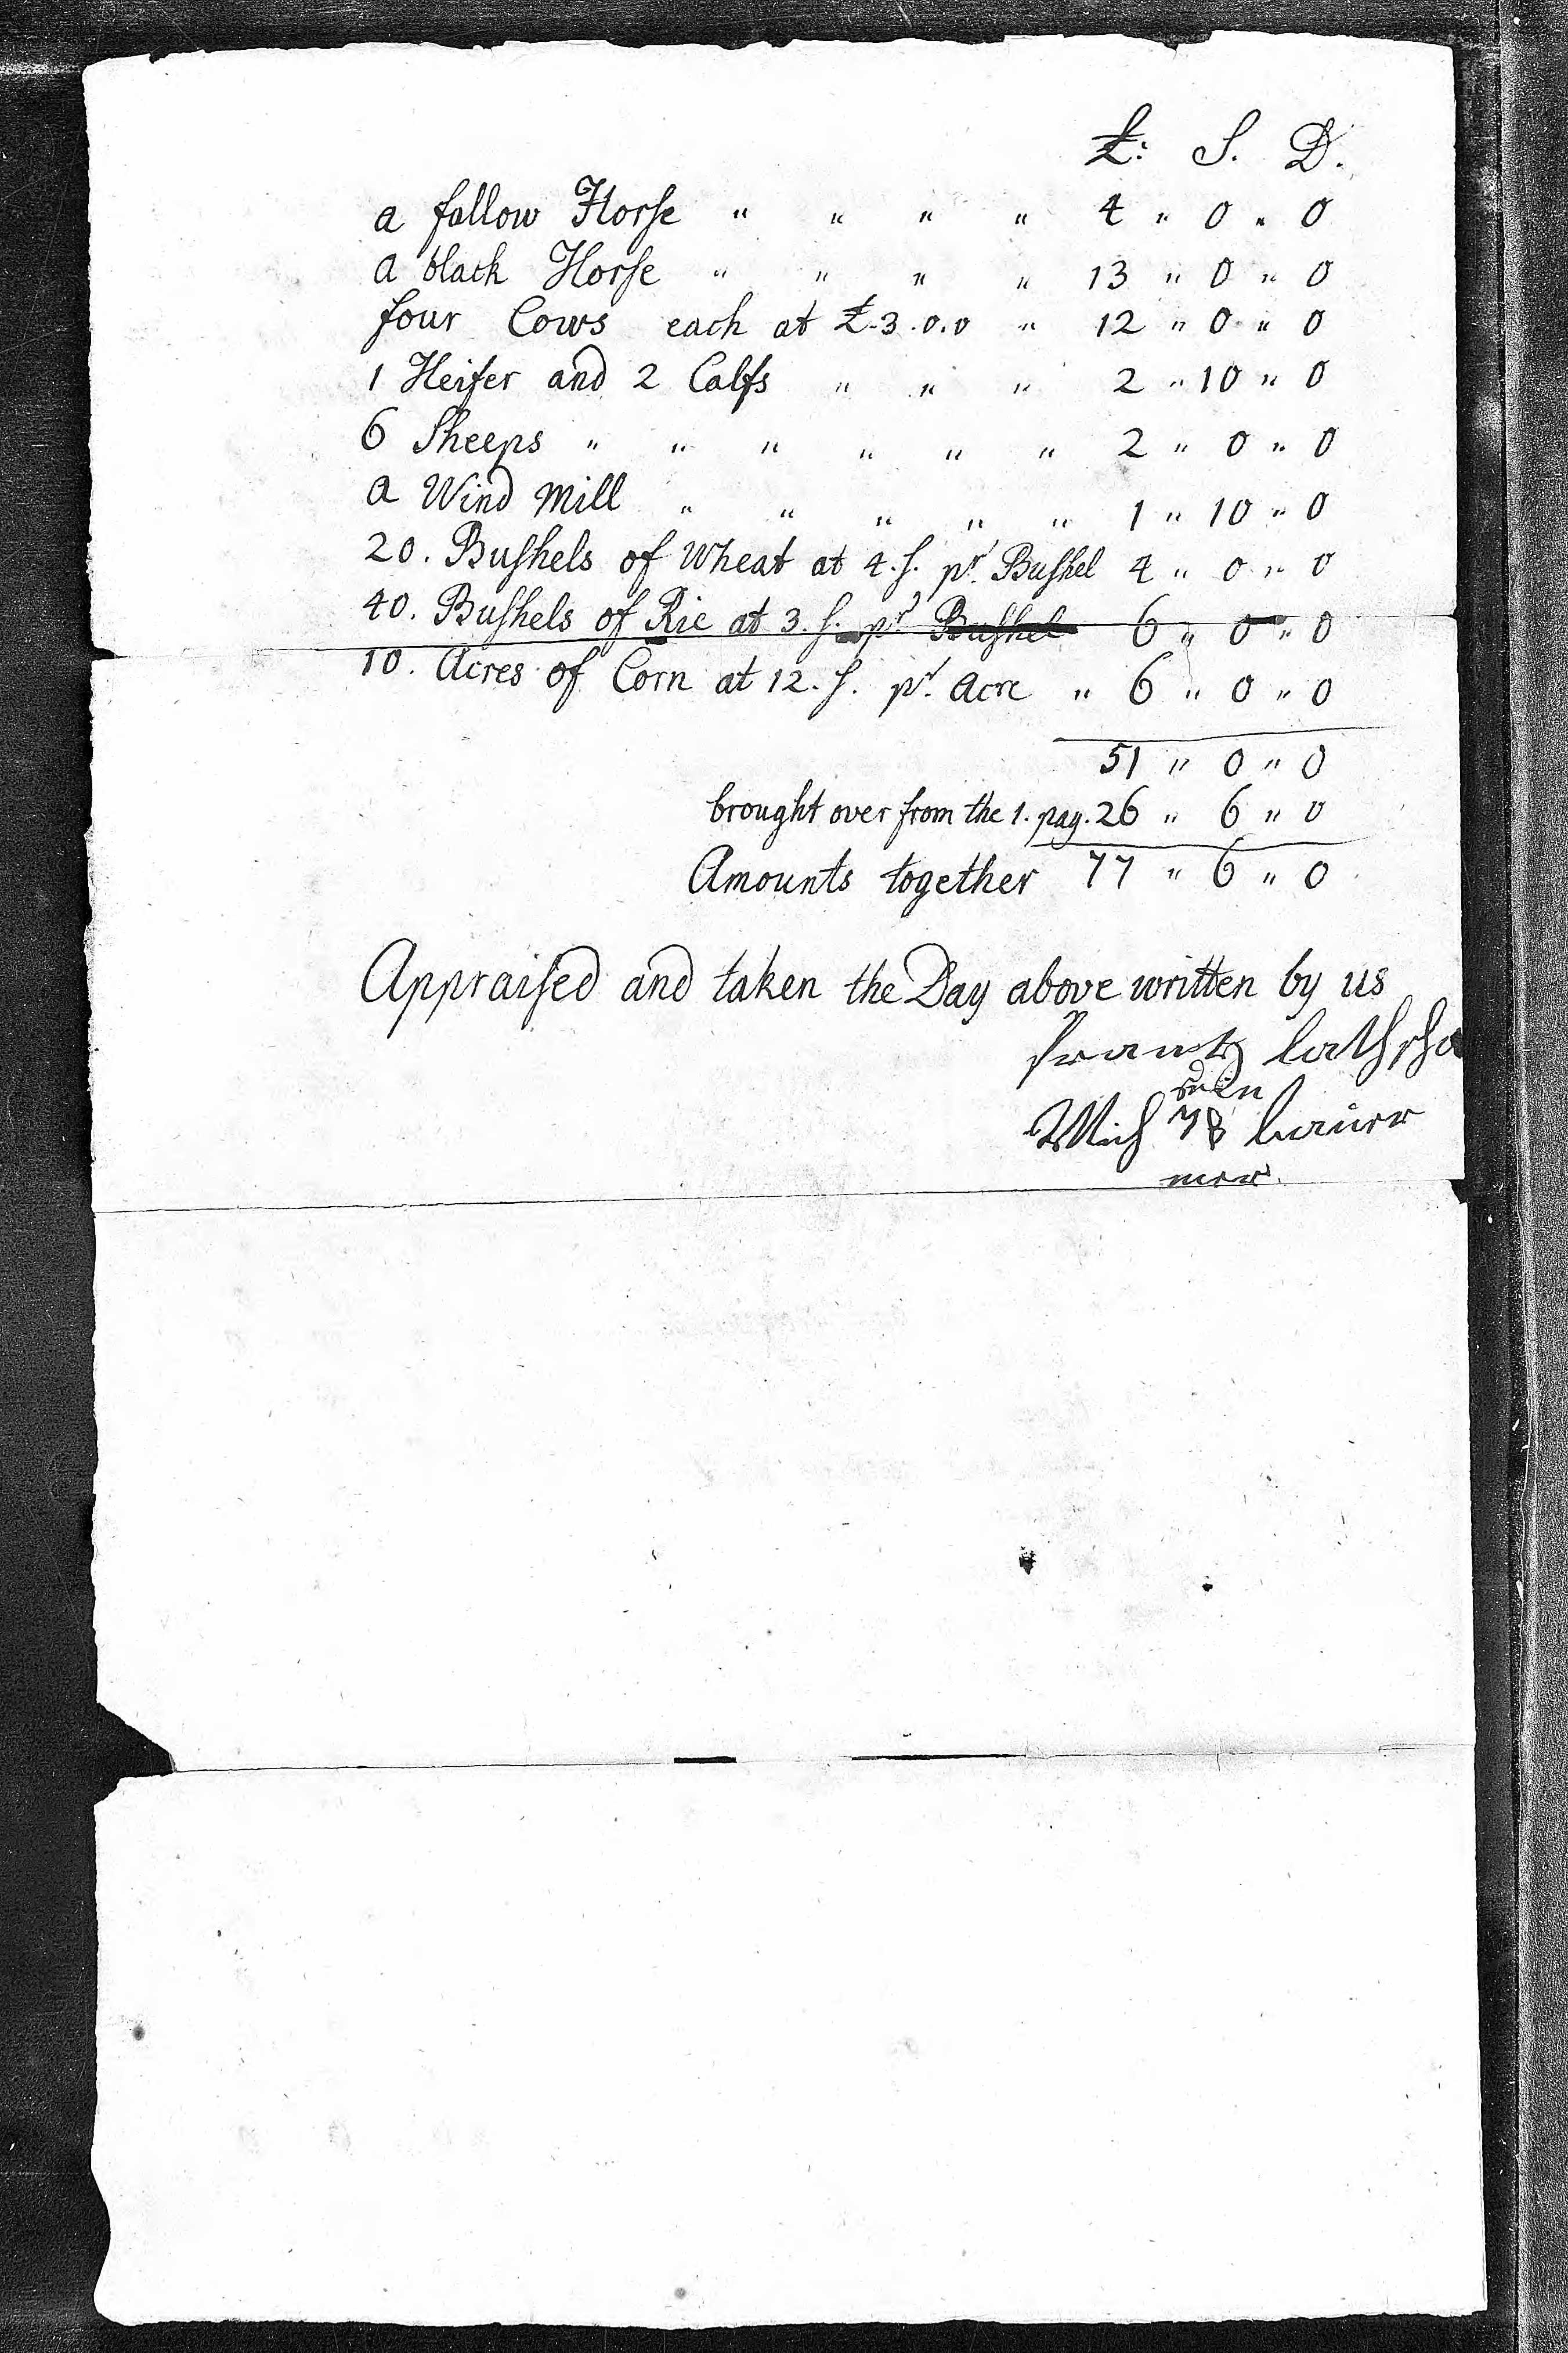 £: S. D.
a fallow Horse " " " " 4 " 0 " 0
a black Horse " " " " 13 " 0 " 0
four Cows each at £.3.0.0 " 12 " 0 " 0
1 Heifer and 2 Calfs " " " 2 " 10 " 0
6 Sheeps " " " " " " 2 " 0 " 0
a Wind Mill " " " " " 1 " 10 " 0
20. Bushels of Wheat at 4. s. pr. Bushel 4 " 0 " 0
40. Bushels of Rie at 3. s. pr. Bushel 6 " 0 " 0
10. Acres of Corn at 12. s. pr. Acre " 6 " 0 " 0
51 " 0 " 0
brought over from the 1. pag. 26 " 6 " 0
Amounts together 77 " 6 " 0
Appraised and taken the Day above written by us
Frantz latscha
Mich bauer